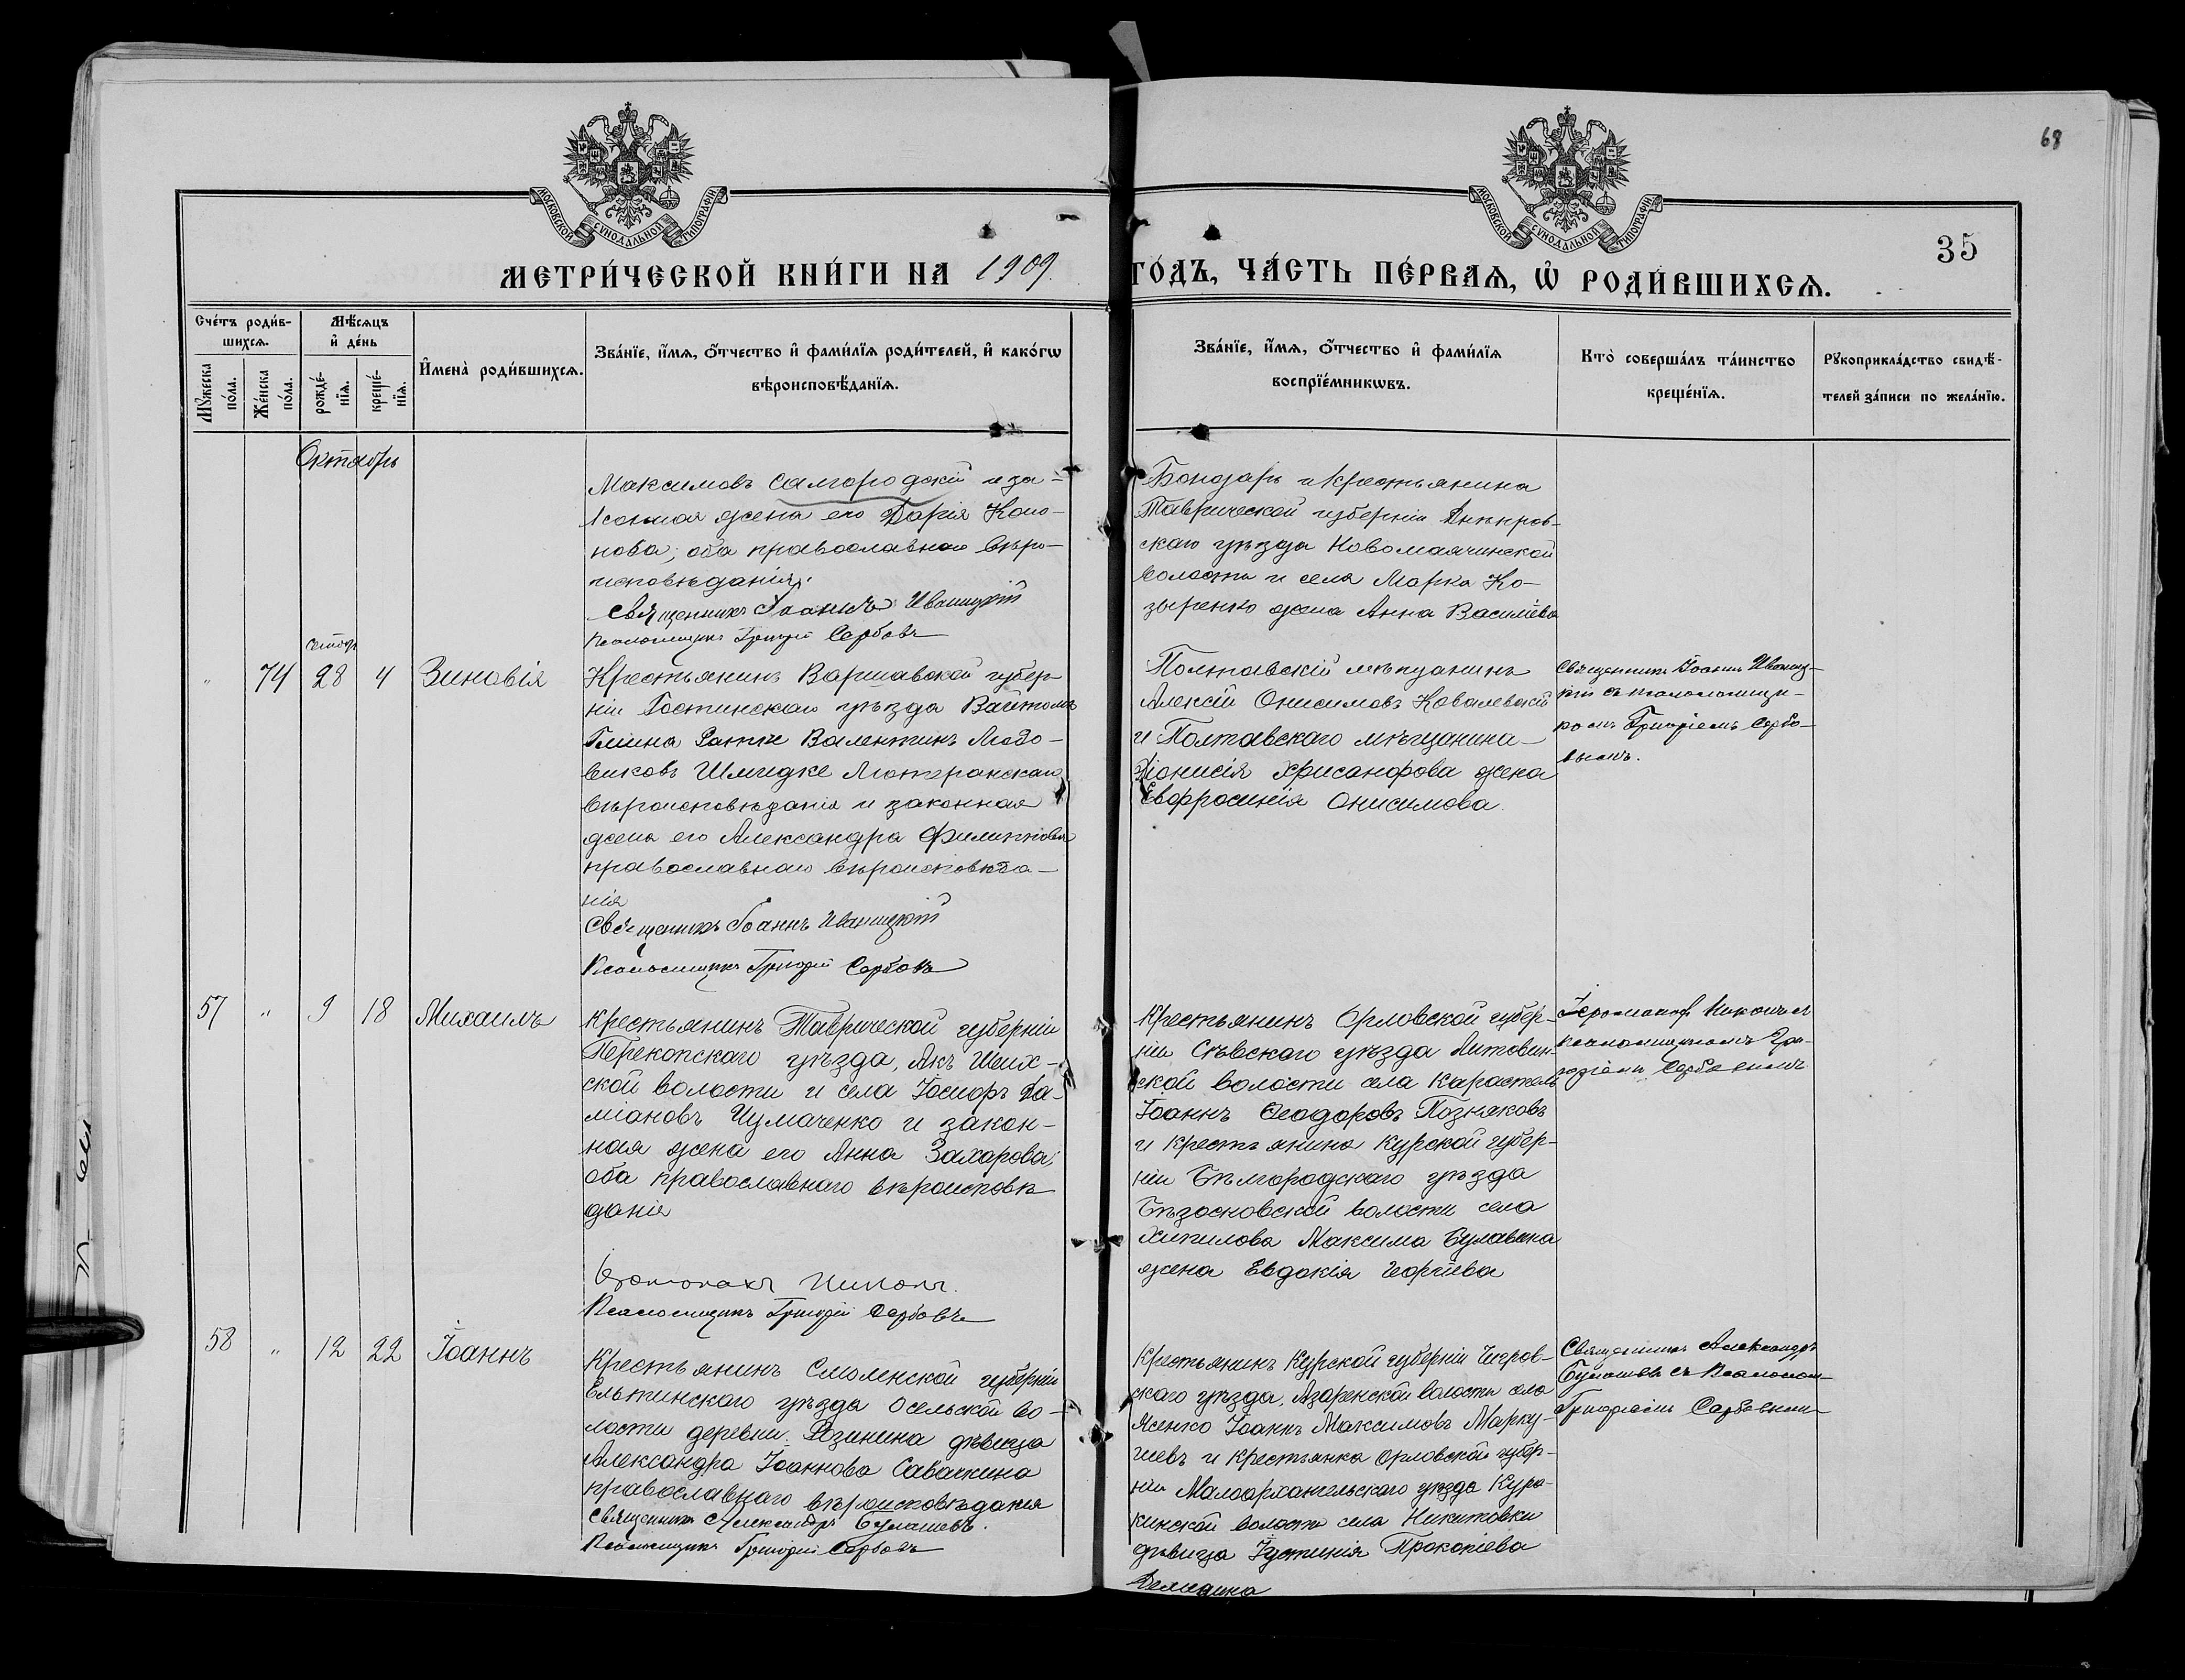 68
МОСКОВСКОЙ СѴНОДАЛЬНОЙ ТИПОГРАФІИ
МОСКОВСКОЙ СѴНОДАЛЬНОЙ ТИПОГРАФІИ
35
МЕТРИ́ЧЕСКОЙ КНИ́ГИ НА 1909.
ГО́ДЪ, ЧА́СТЬ ПЕ́РВАѦ, Ѽ РОДИ́ВШИХСѦ.
Сче́тъ роди́в-
шихсѧ.
Мꙋ́жеска
по́ла.
Же́нска
по́ла.
Мѣ́сѧцъ
и҆ де́нь
рожде́-
нїѧ.
креще́-
нїѧ.
И҆мена̀ роди́вшихсѧ.
Зва́нїе, и҆́мѧ, ѻ҆́тчество и҆ фами́лїѧ роди́телей, и҆ како́гѡ
вѣроисповѣ́данїѧ.
Зва́нїе, и҆́мѧ, ѻ҆́тчество и҆ фами́лїѧ
воспрїе́мникѡвъ.
Кто̀ соверша́лъ та́инство
креще́нїѧ.
Рꙋкоприкла́дство свидѣ́-
телей за́писи по жела́нїю.
Октябрь
Максимовъ Салгородскій и за-
конная жена его Дарія Коно-
нова; оба православнаго вѣро-
исповѣданія.
Священникъ Іоаннъ Иваницкій
Псаломщикъ Григорій Сербовъ
Бондарь и крестьянина
Таврической губерніи Днѣпров-
скаго уѣзда Новомаячинской
волости и села Марка Ко-
зыренко жена Анна Василіева
сентябр
" 74 28 4 Зиновія
Крестьянинъ Варшавской губер
ніи Гостинскаго уѣзда
Гмина Валентинъ
Шмидке Лютеранскаго
вѣроисповѣданія и законная
жена его Александра Филиппова
православнаго вѣроисповѣда-
нія
Священникъ Іоаннъ Иваницкій
Псаломщикъ Григорій Сербовъ
Полтавскій мѣщанинъ
Алексій Онисимовъ Ковалевскій
и Полтавскаго мѣщанина
Діонисія Хрисанфова жена
Евфросинія Онисимова.
Священникъ Іоаннъ Иваниц-
кій съ псаломщи-
комъ Григоріемъ Сербо-
вымъ.
57 " 9 18 Михаилъ
Крестьянинъ Таврической губерніи
Перекопскаго уѣзда, Акъ Шеих-
ской волости и села Іосифъ Да-
міановъ Чумаченко и закон-
ная жена его Анна Захарова;
оба православнаго вѣроисповѣ
данія
Іеромонахъ Никонъ.
Псаломщикъ Григорій Сербовъ
Крестьянинъ Орловской губер-
ніи Сѣвскаго уѣзда Литовин-
ской волости села
Іоаннъ Ѳеодоровъ Позняковъ
и крестьянина Курской губер-
ніи Бѣлгородскаго уѣзда
волости села
Максима Булавина
жена Евдокія Георгіева
Іеромонах Никонъ съ
псаломщикомъ Гри-
горіемъ Сербовымъ
58 " 12 22 Іоаннъ
Крестьянинъ Смоленской губерніи
Ельнинскаго уѣзда Осельской во-
лости деревни дѣвица
Александра Іоаннова Савачкина
православнаго вѣроисповѣданія
Священникъ Александръ Булашевъ.
Псаломщикъ Григорій Сербовъ
Крестьянинъ Курской губерніи Щигров-
скаго уѣзда, волости села
Ясенко Іоаннъ Максимовъ Марку-
шевъ и крестьянка Орловской губер-
ніи Малоархангельскаго уѣзда Кура-
кинской волости села Никитовки
дѣвица Іустинія Прокопіева
Демидина
Священникъ Александръ
Булашевъ съ Псаломщ
Григоріемъ Сербовымъ